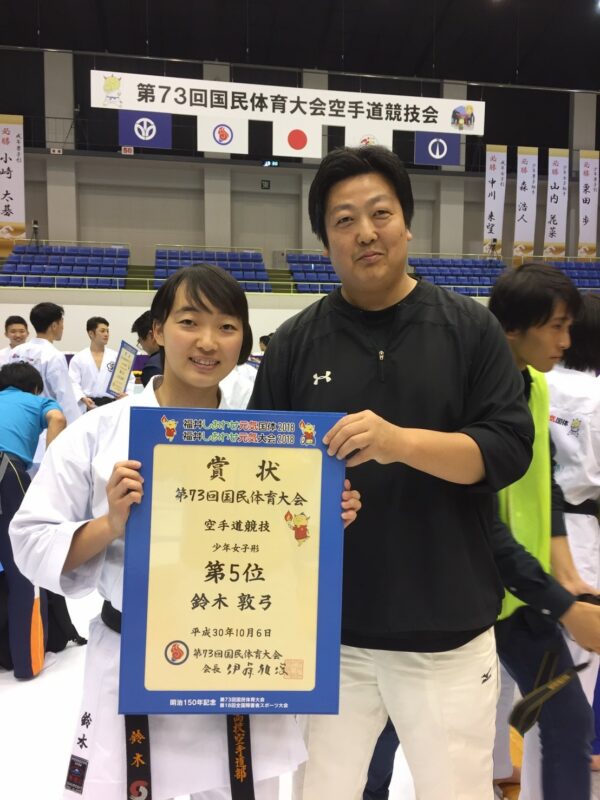 第73回国民体育大会空手道競技会
必勝
小崎 大碁
必勝
中川 来望
必勝
森 浩人
必勝
山内 花菜
必勝
粟田 歩
福井しあわせ元気国体2018
福井しあわせ元気大会2018
賞状
第73回国民体育大会
空手道競技
少年女子形
第5位
鈴木 敦弓
平成30年10月6日
第73回国民体育大会
会長
明治150年記念
第73回国民体育大会
第18回全国障害者スポーツ大会
鈴木
鈴木
高校空手道部